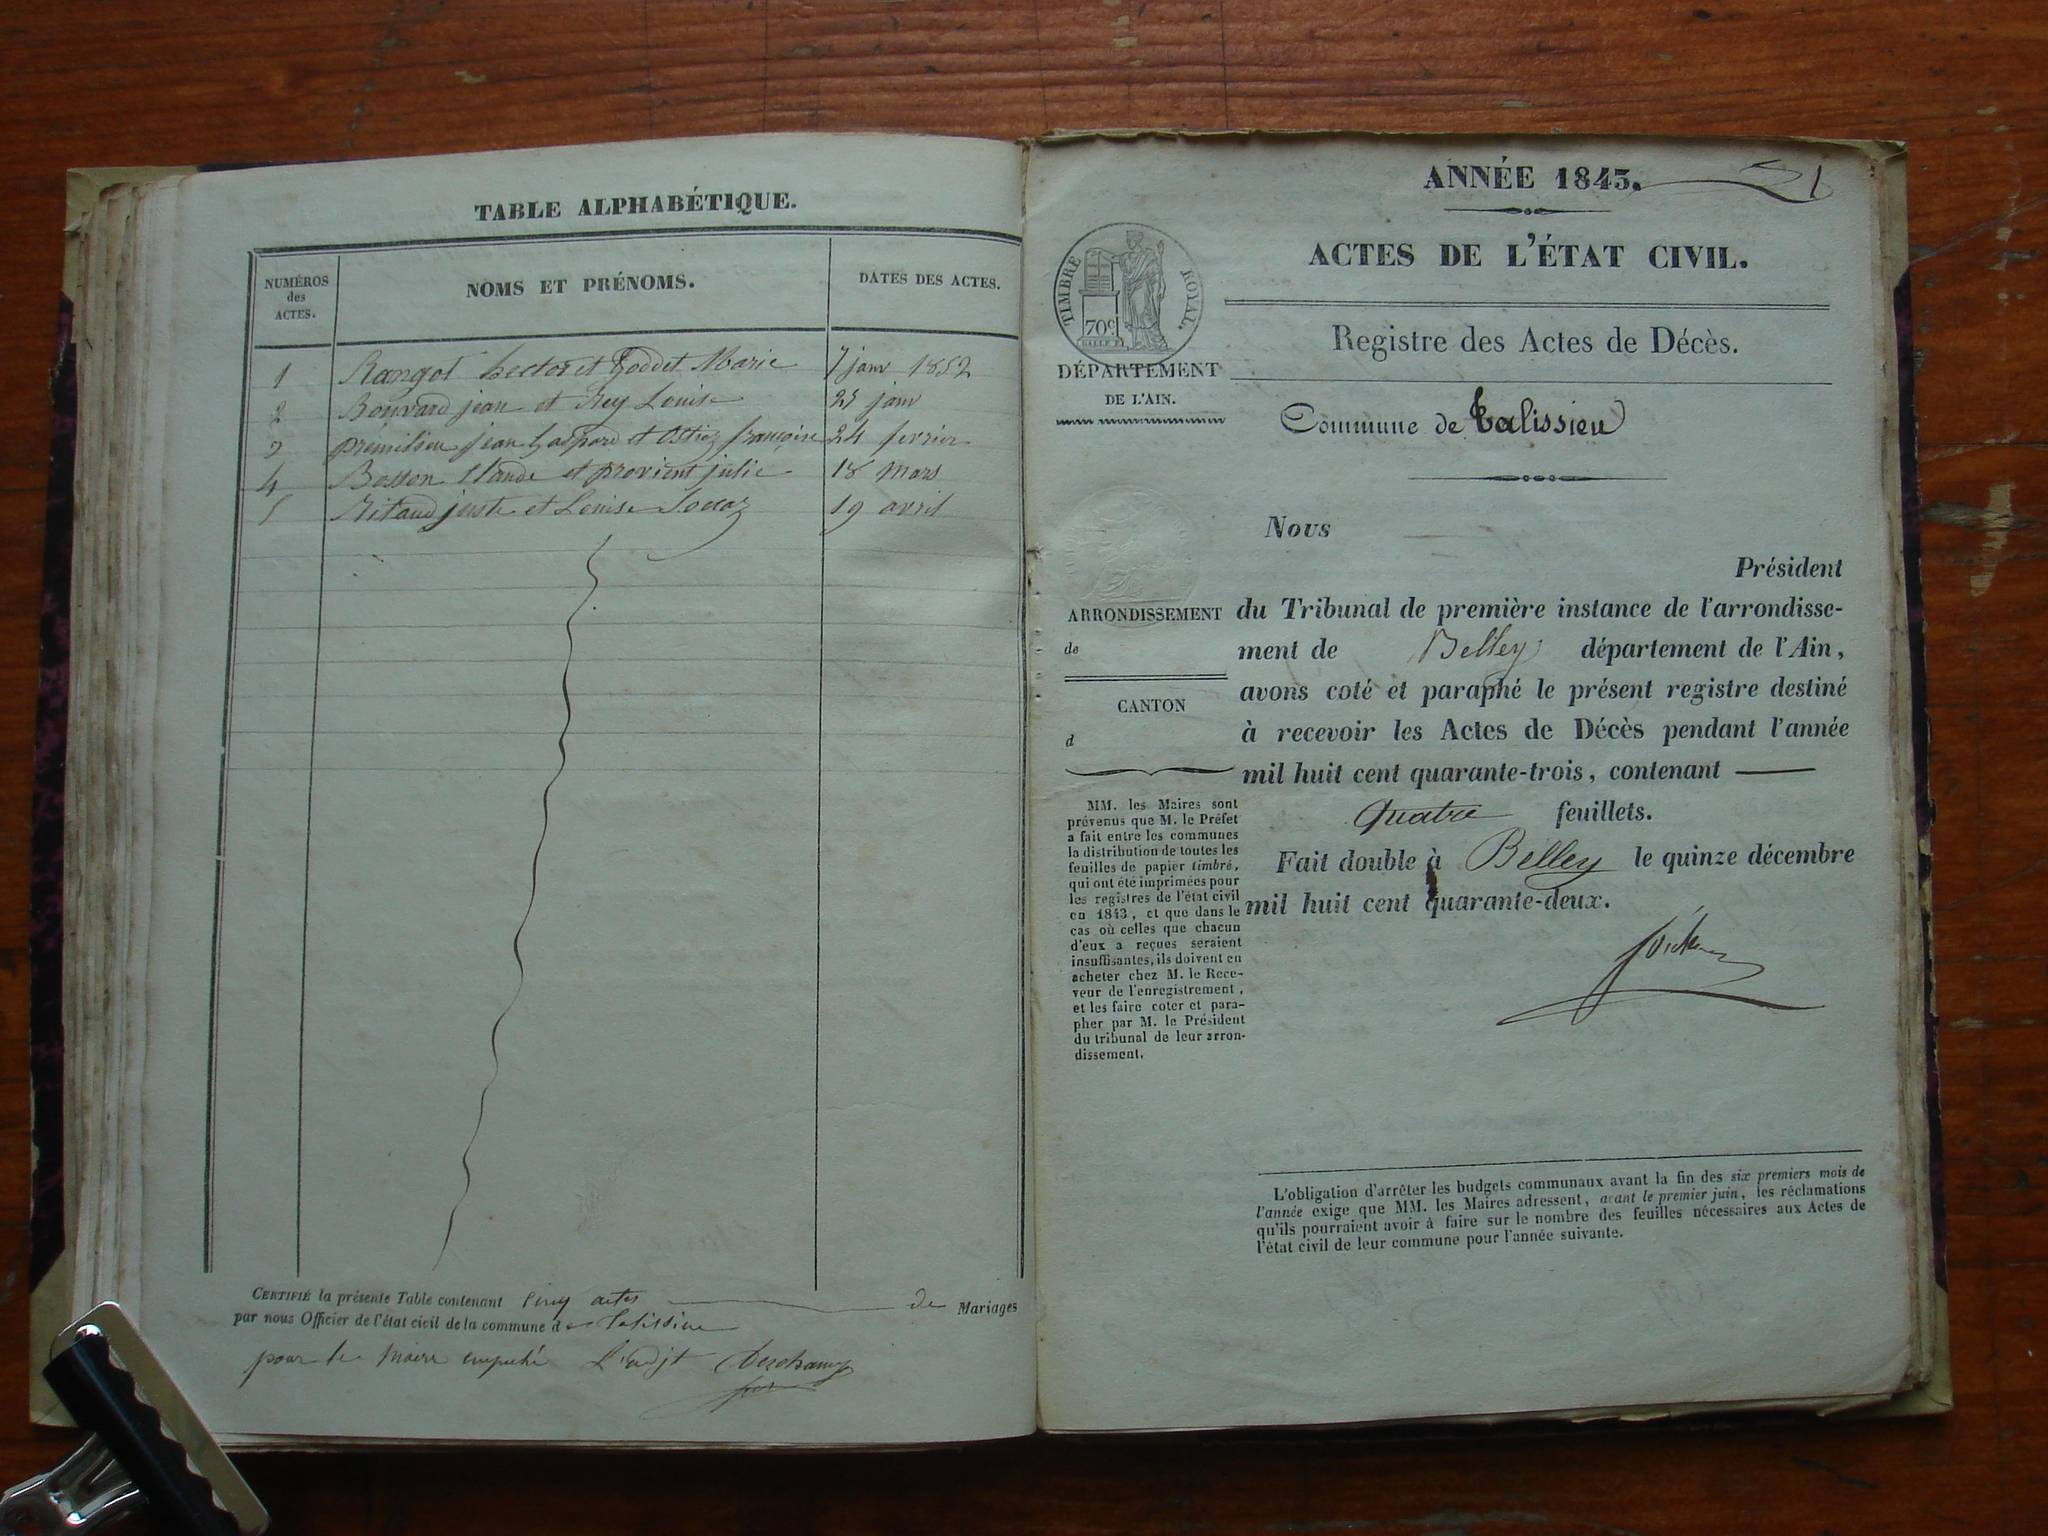 TABLE ALPHABÉTIQUE.
NUMÉROS des ACTES.
NOMS ET PRÉNOMS.
DATES DES ACTES.
1 Rangot hector et Goddet Marie 7 janv 1852
2 Bouvard jean et Rey Louise 25 janv
3 premillieu jean Gaspard et françoise 24 fevrier
4 Bosson Claude et provient julie 18 Mars
5 Ritaud juste et Louise 19 avril
CERTIFIÉ la présente Table contenant Cinq actes de Mariages
par nous Officier de l'état civil de la commune de Talissieu
pour le Maire empeché L'adjt Deschamps
ANNÉE 1843. 1
ACTES DE L'ÉTAT CIVIL.
TIMBRE ROYAL.
70c
DÉPARTEMENT
DE L'AIN.
Registre des Actes de Décès.
Commune de Talissieu
Nous
Président
du Tribunal de première instance de l'arrondisse-
ment de Belley département de l'Ain,
avons coté et paraphé le présent registre destiné
à recevoir les Actes de Décès pendant l'année
mil huit cent quarante-trois, contenant
Quatre feuillets.
Fait double à Belley le quinze décembre
mil huit cent quarante-deux.
ARRONDISSEMENT
de
CANTON
d
MM. les Maires sont
prévenus que M. le Préfet
a fait entre les communes
la distribution de toutes les
feuilles de papier timbré,
qui ont été imprimées pour
les registres de l'état civil
en 1843, et que dans le
cas où celles que chacun
d'eux a reçues seraient
insuffisantes, ils doivent en
acheter chez M. le Rece-
veur de l'enregistrement,
et les faire coter et para-
pher par M. le Président
du tribunal de leur arron-
dissement.
L'obligation d'arrêter les budgets communaux avant la fin des six premiers mois de
l'année exige que MM. les Maires adressent, avant le premier juin, les réclamations
qu'ils pourraient avoir à faire sur le nombre des feuilles nécessaires aux Actes de
l'état civil de leur commune pour l'année suivante.